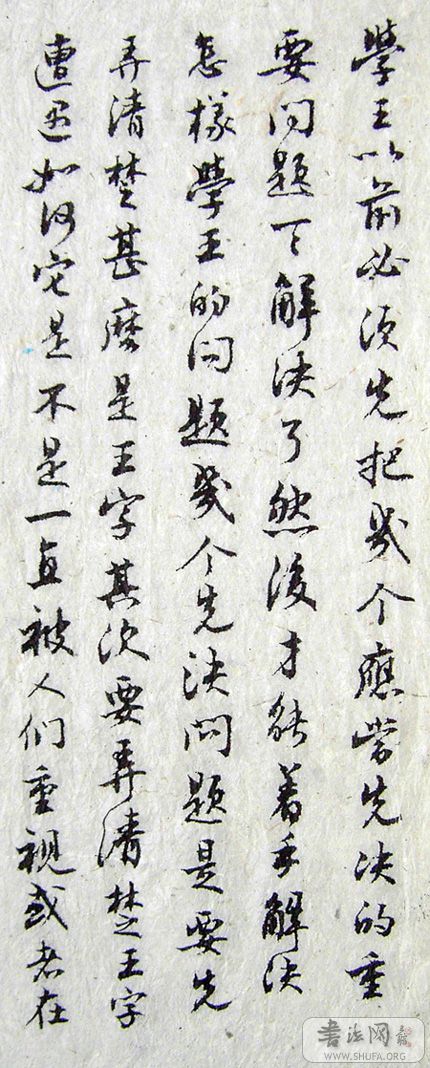 學王以前必須先把幾个應當先决的重
要问題一一解决了然後才能着手解决
怎樣學王的问題幾个先决问題是要先
弄清楚甚麽是王字其次要弄清楚王字
遭遇如何它是不是一直被人们重視或者在
书法网
WWW.SHUFA.ORG